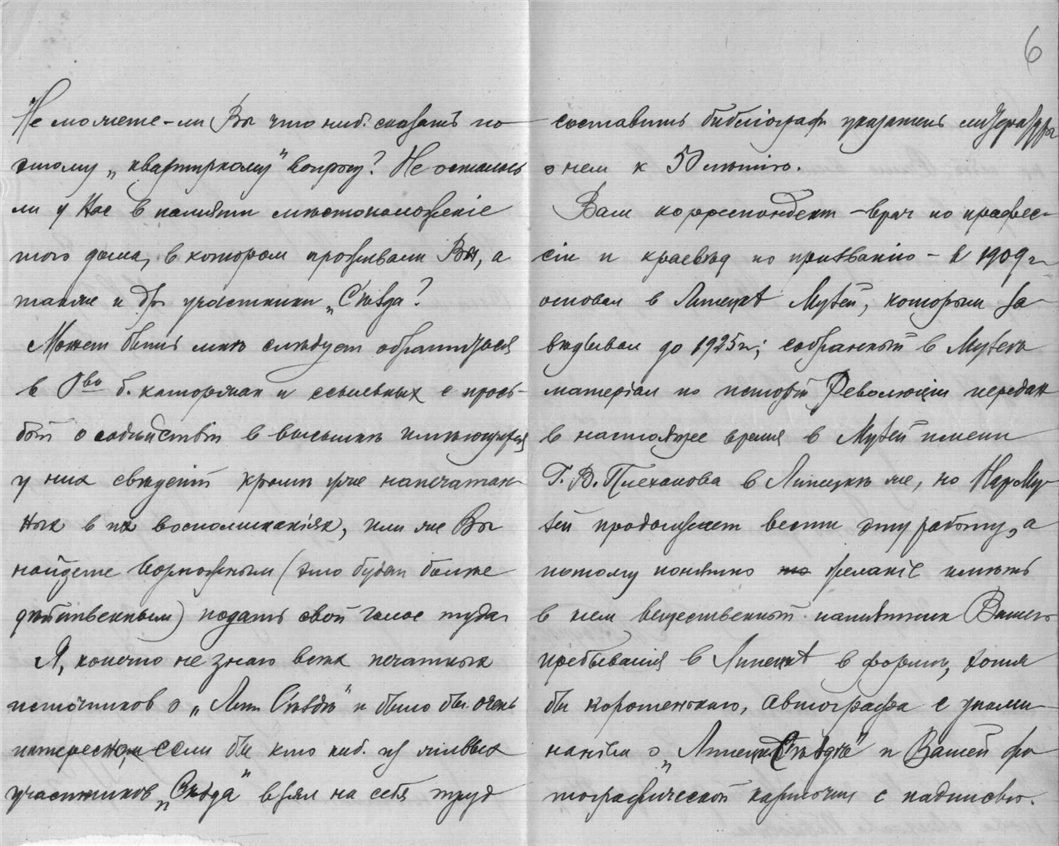 Не можете-ли Вы что ниб. сказать по
этому „квартирному" вопросу? Не осталось
ли у Вас в памяти мѣстоположеніе
того дома, в котором проживали Вы, а
также и др. участники „Съѣзда"?
Может быть мнѣ слѣдует обратиться
в Oво б. каторжан и ссыльных с прось-
бой о содѣйствіи в высылкѣ имѣющихся
у них свѣдѣній кромѣ уже напечатан-
ных в их воспоминаніях, или же Вы
найдете возможным (это будет болѣе
дѣйственным) подать свой голос туда.
Я, конечно не знаю всѣх печатных
источников о „Лип. Съѣздѣ" и было бы очень
интересно, если бы кто ниб. из живых
участников „Съѣзда" взял на себя труд
6
составить библіограф. указатель литературы
о нем к 50 лѣтію.
Ваш корреспондент – врач по профес-
сіи и краевѣд по призванію – в 1909 г.
основал в Липецкѣ Музей, которым за-
вѣдывал до 1925 г.; собранный в Музеѣ
матеріал по исторіи Революціи передан
в настоящее время в Музей имени
Г. В. Плеханова в Липецкѣ же, но Нар. Му-
зей продолжает вести эту работу, а
потому понятно желаніе имѣть
в нем вещественный памятник Вашего
пребыванія в Липецкѣ в формѣ, хотя
бы коротенькаго, автографа с упоми-
наніем о „Липецк. Съѣздѣ" и Вашей фо-
тографической карточки с надписью.